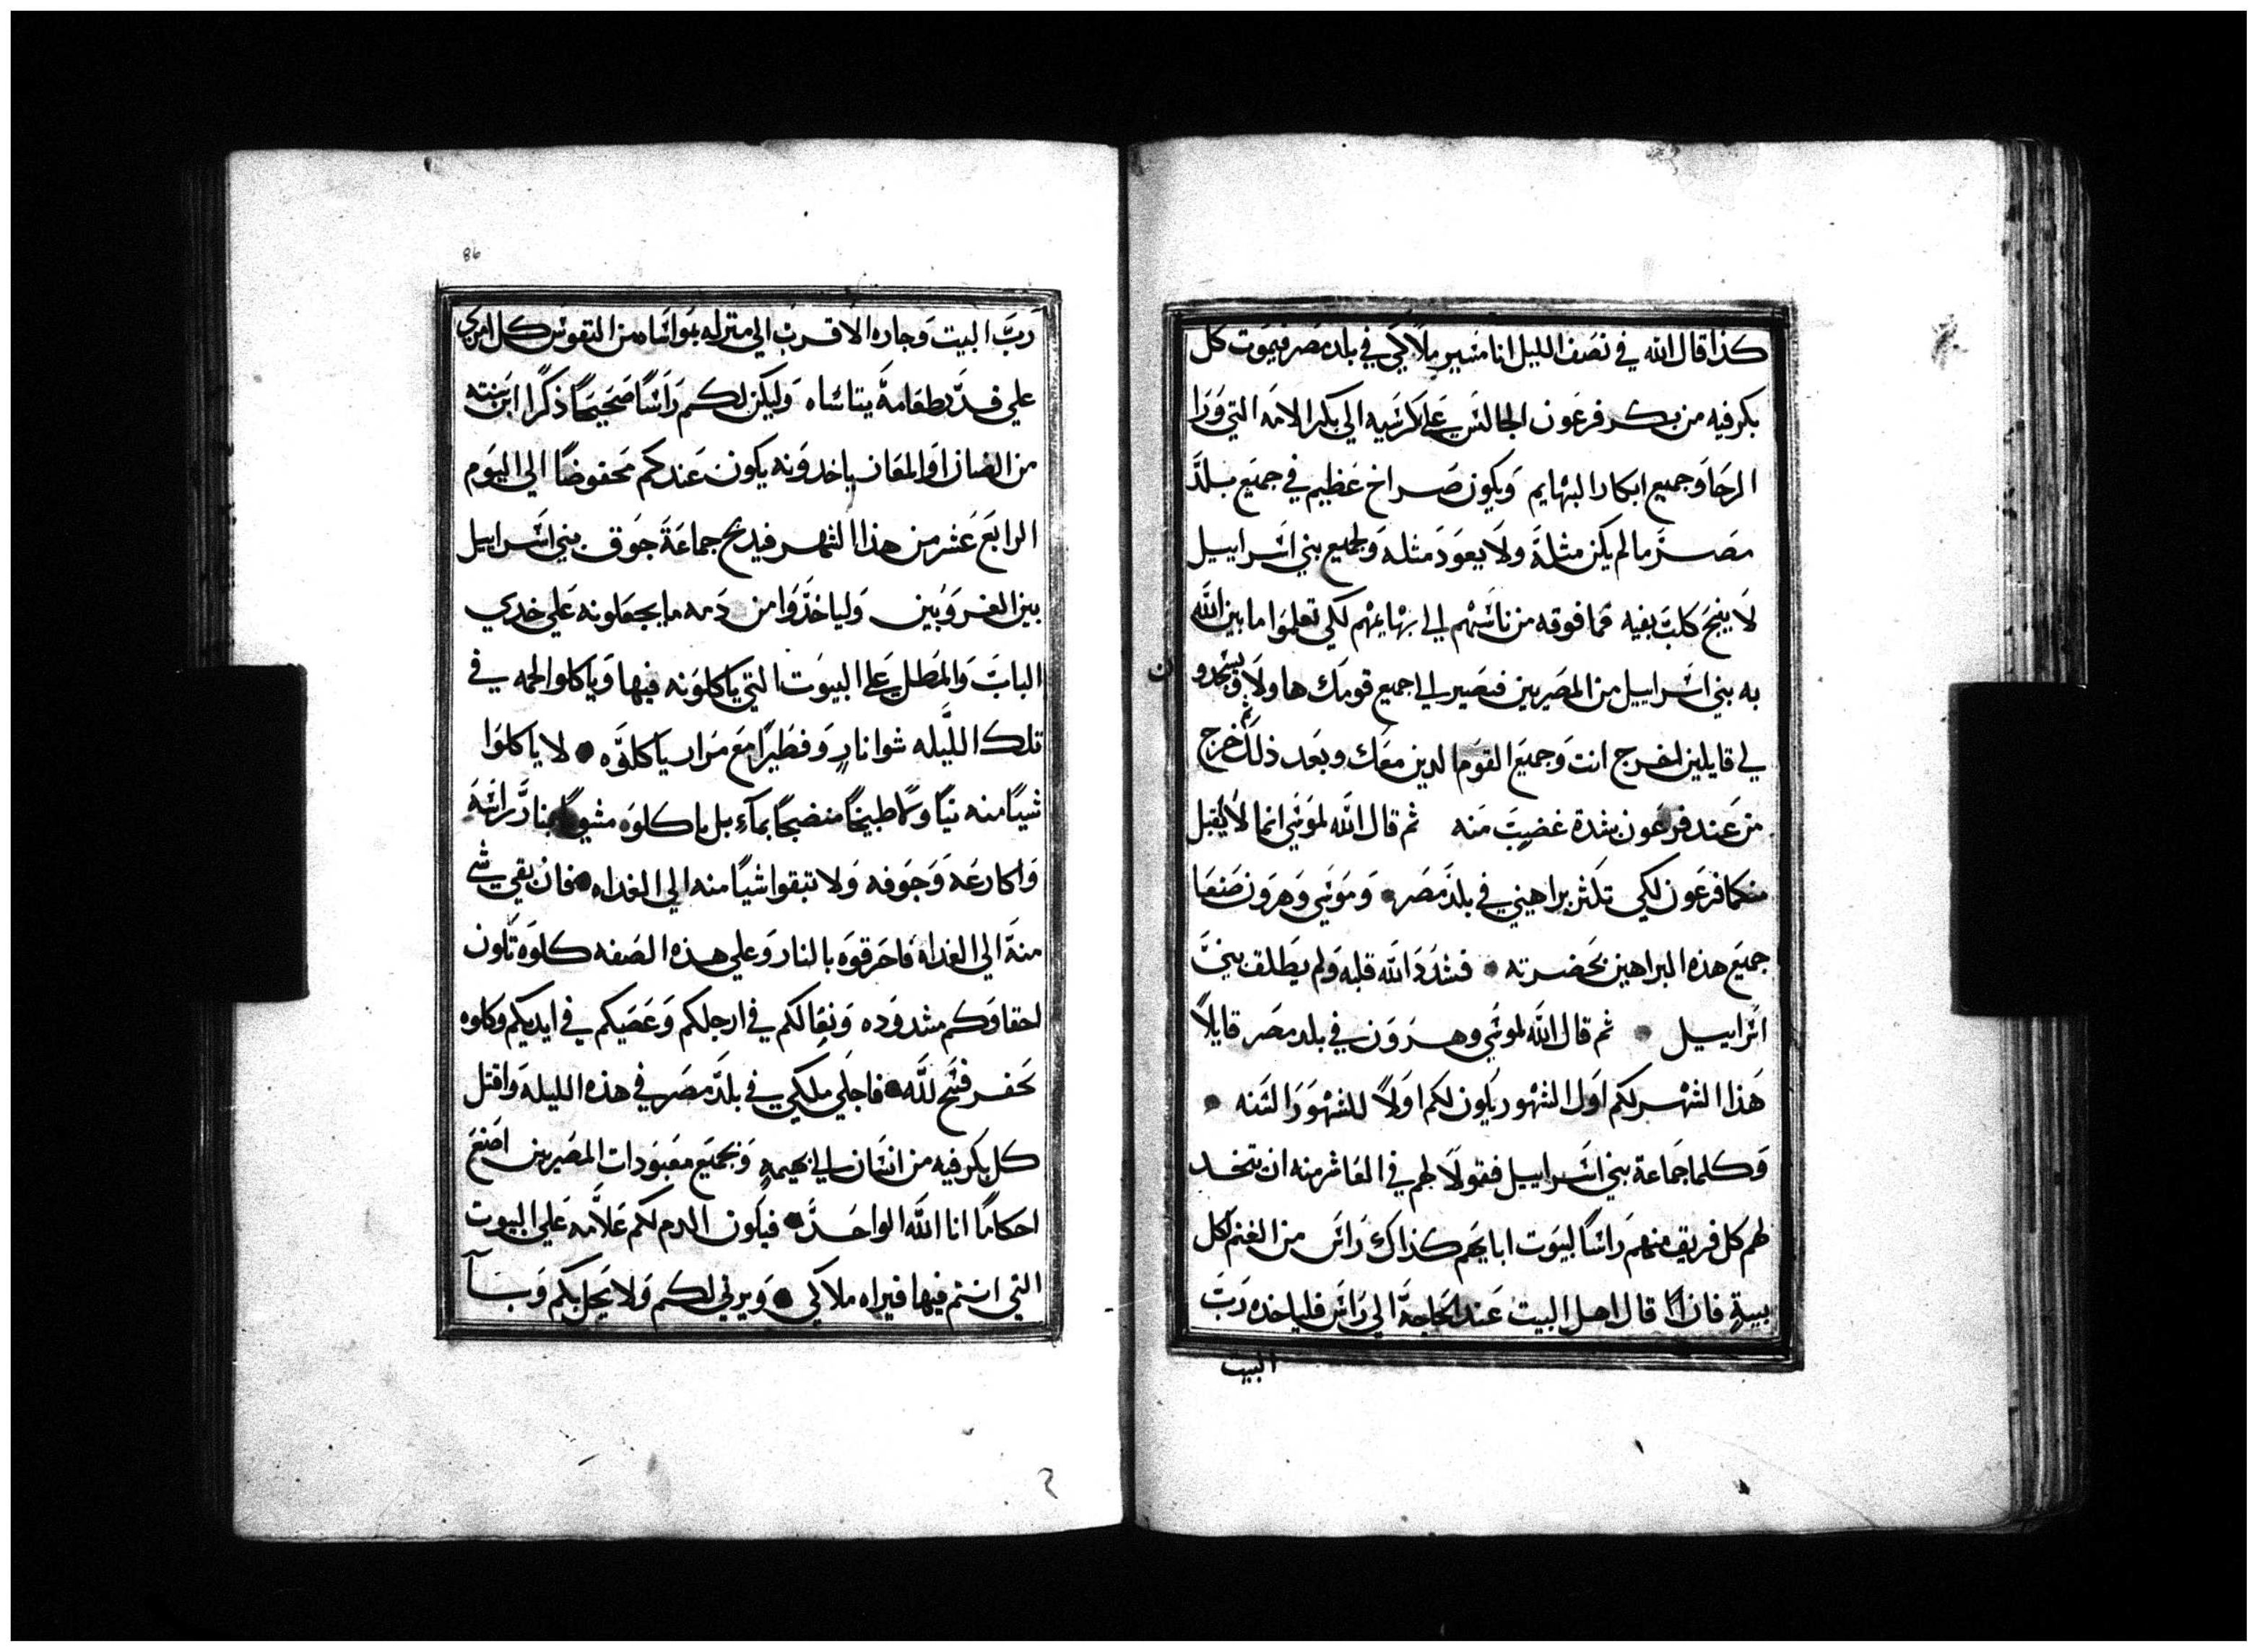 كذا قال الله في نصف الليل انا مسير ملاكي في بلد مصر فيموت كل
بكر فيه من بكر فرعون الجالس علي كرسيه الي بكر الامه التي ورا
الرحا وجميع ابكار البهايم ويكون صراخ عظيم في جميع بلد
مصر ما لم يكن مثله ولا يعود مثله ولجميع بني اسراييل
لا ينبح كلب بفيه فما فوقه من ناسهم الي بهايمهم لكي تعلموا ما بين الله
به بني اسراييل من المصريين فيصير الي جميع قومك هاولاء ويسجدون
لي قايلين اخرج انت وجميع القوم الدين معك وبعد ذلك اخرج
من عند فرعون بشدة غضب منه ثم قال الله لموسي انما لا يقبل
منكما فرعون لكي تكثر براهيني في بلد مصر وموسي وهرون صنعا
جميع هذه البراهين بحضرته فشدد الله قلبه ولم يطلق بني
اسراييل ثم قال الله لموسي وهرون في بلد مصر قايلاً
هذا الشهر لكم اول الشهور يكون لكم اولاً للشهور السنه
وكلما جماعة بني اسراييل فقولا لهم في العاشر منه ان يتخد
لهم كل فريق منهم راسًا لبيوت ابايهم كذاك راس من الغنم لكل
بيت فان قال اهل البيت عند الحاجة الي راس فلياخده رب
البيت
86
رب البيت وجاره الاقرب الي منزله بمواساه من النفوس كل امري
علي قد طعامة يتاساه وليكن لكم راسًا صحيحًا ذكرًا ابن سنته
من الضان او المعاز ياخدونه يكون عندكم محفوضًا الي اليوم
الرابع عشر من هذا الشهر فيدبح جماعة جوق بني اسراييل
بين الغروبين ولياخذوا من دمه ما يجعلونه علي خدي
الباب والمطل علي البيوت التي ياكلونه فيها وياكلوا لحمه في
تلك الليله شوا نارٍ وفطيرًا مع مرار ياكلوه لا ياكلوا
شيًا منه نيًا ولا طبيخًا منضجًا بمآء بل ياكلوه مشويًا بنار راسه
واكارعه وجوفه ولا تبقوا شيًا منه الي الغداه فان بقي شي
منه الي الغداه فاحرقوه بالنار وعلي هذه الصفه كلوه تكون
احقاوكم مشدوده ونعالكم في ارجلكم وعصيكم في ايديكم وكلوه
بحفز فسح لله فاجلي ملكي في بلد مصر في هذه الليلة واقتل
كل بكر فيه من انسان الي بهيمه وبجميع معبودات المصريين اصنع
احكامًا انا الله الواحد فيكون الدم لكم علامه علي البيوت
التي انتم فيها فيراه ملاكي ويرثي لكم ولا يحل بكم وبآ